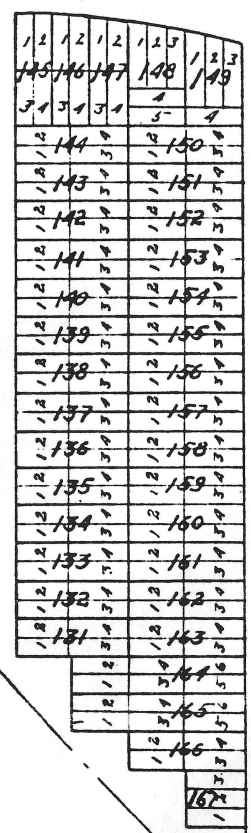 1 2 1 2 1 2 1 2 3 1 2 3
145 146 147 148 149
3 4 3 4 3 4 4
5 4
1 2 144 3 4 1 2 150 3 4
1 2 143 3 4 1 2 151 3 4
1 2 142 3 4 1 2 152 3 4
1 2 141 3 4 1 2 153 3 4
1 2 140 3 4 1 2 154 3 4
1 2 139 3 4 1 2 155 3 4
1 2 138 3 4 1 2 156 3 4
1 2 137 3 4 1 2 157 3 4
1 2 136 3 4 1 2 158 3 4
1 2 135 3 4 1 2 159 3 4
1 2 134 3 4 1 2 160 3 4
1 2 133 3 4 1 2 161 3 4
1 2 132 3 4 1 2 162 3 4
1 2 131 3 4 1 2 163 3 4
1 2 3 4 164 5 6
1 2 3 4 165 5 6
1 2 166 3 4
3
167 2
1